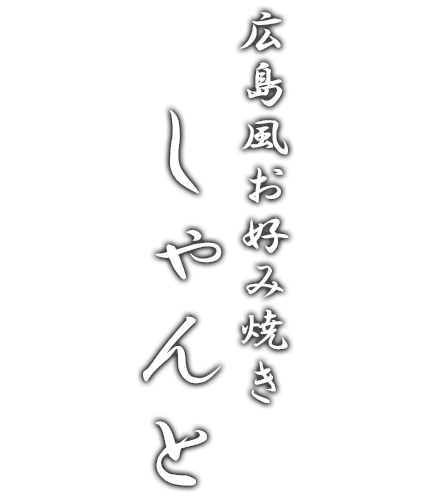 広島風お好み焼き
しゃんと